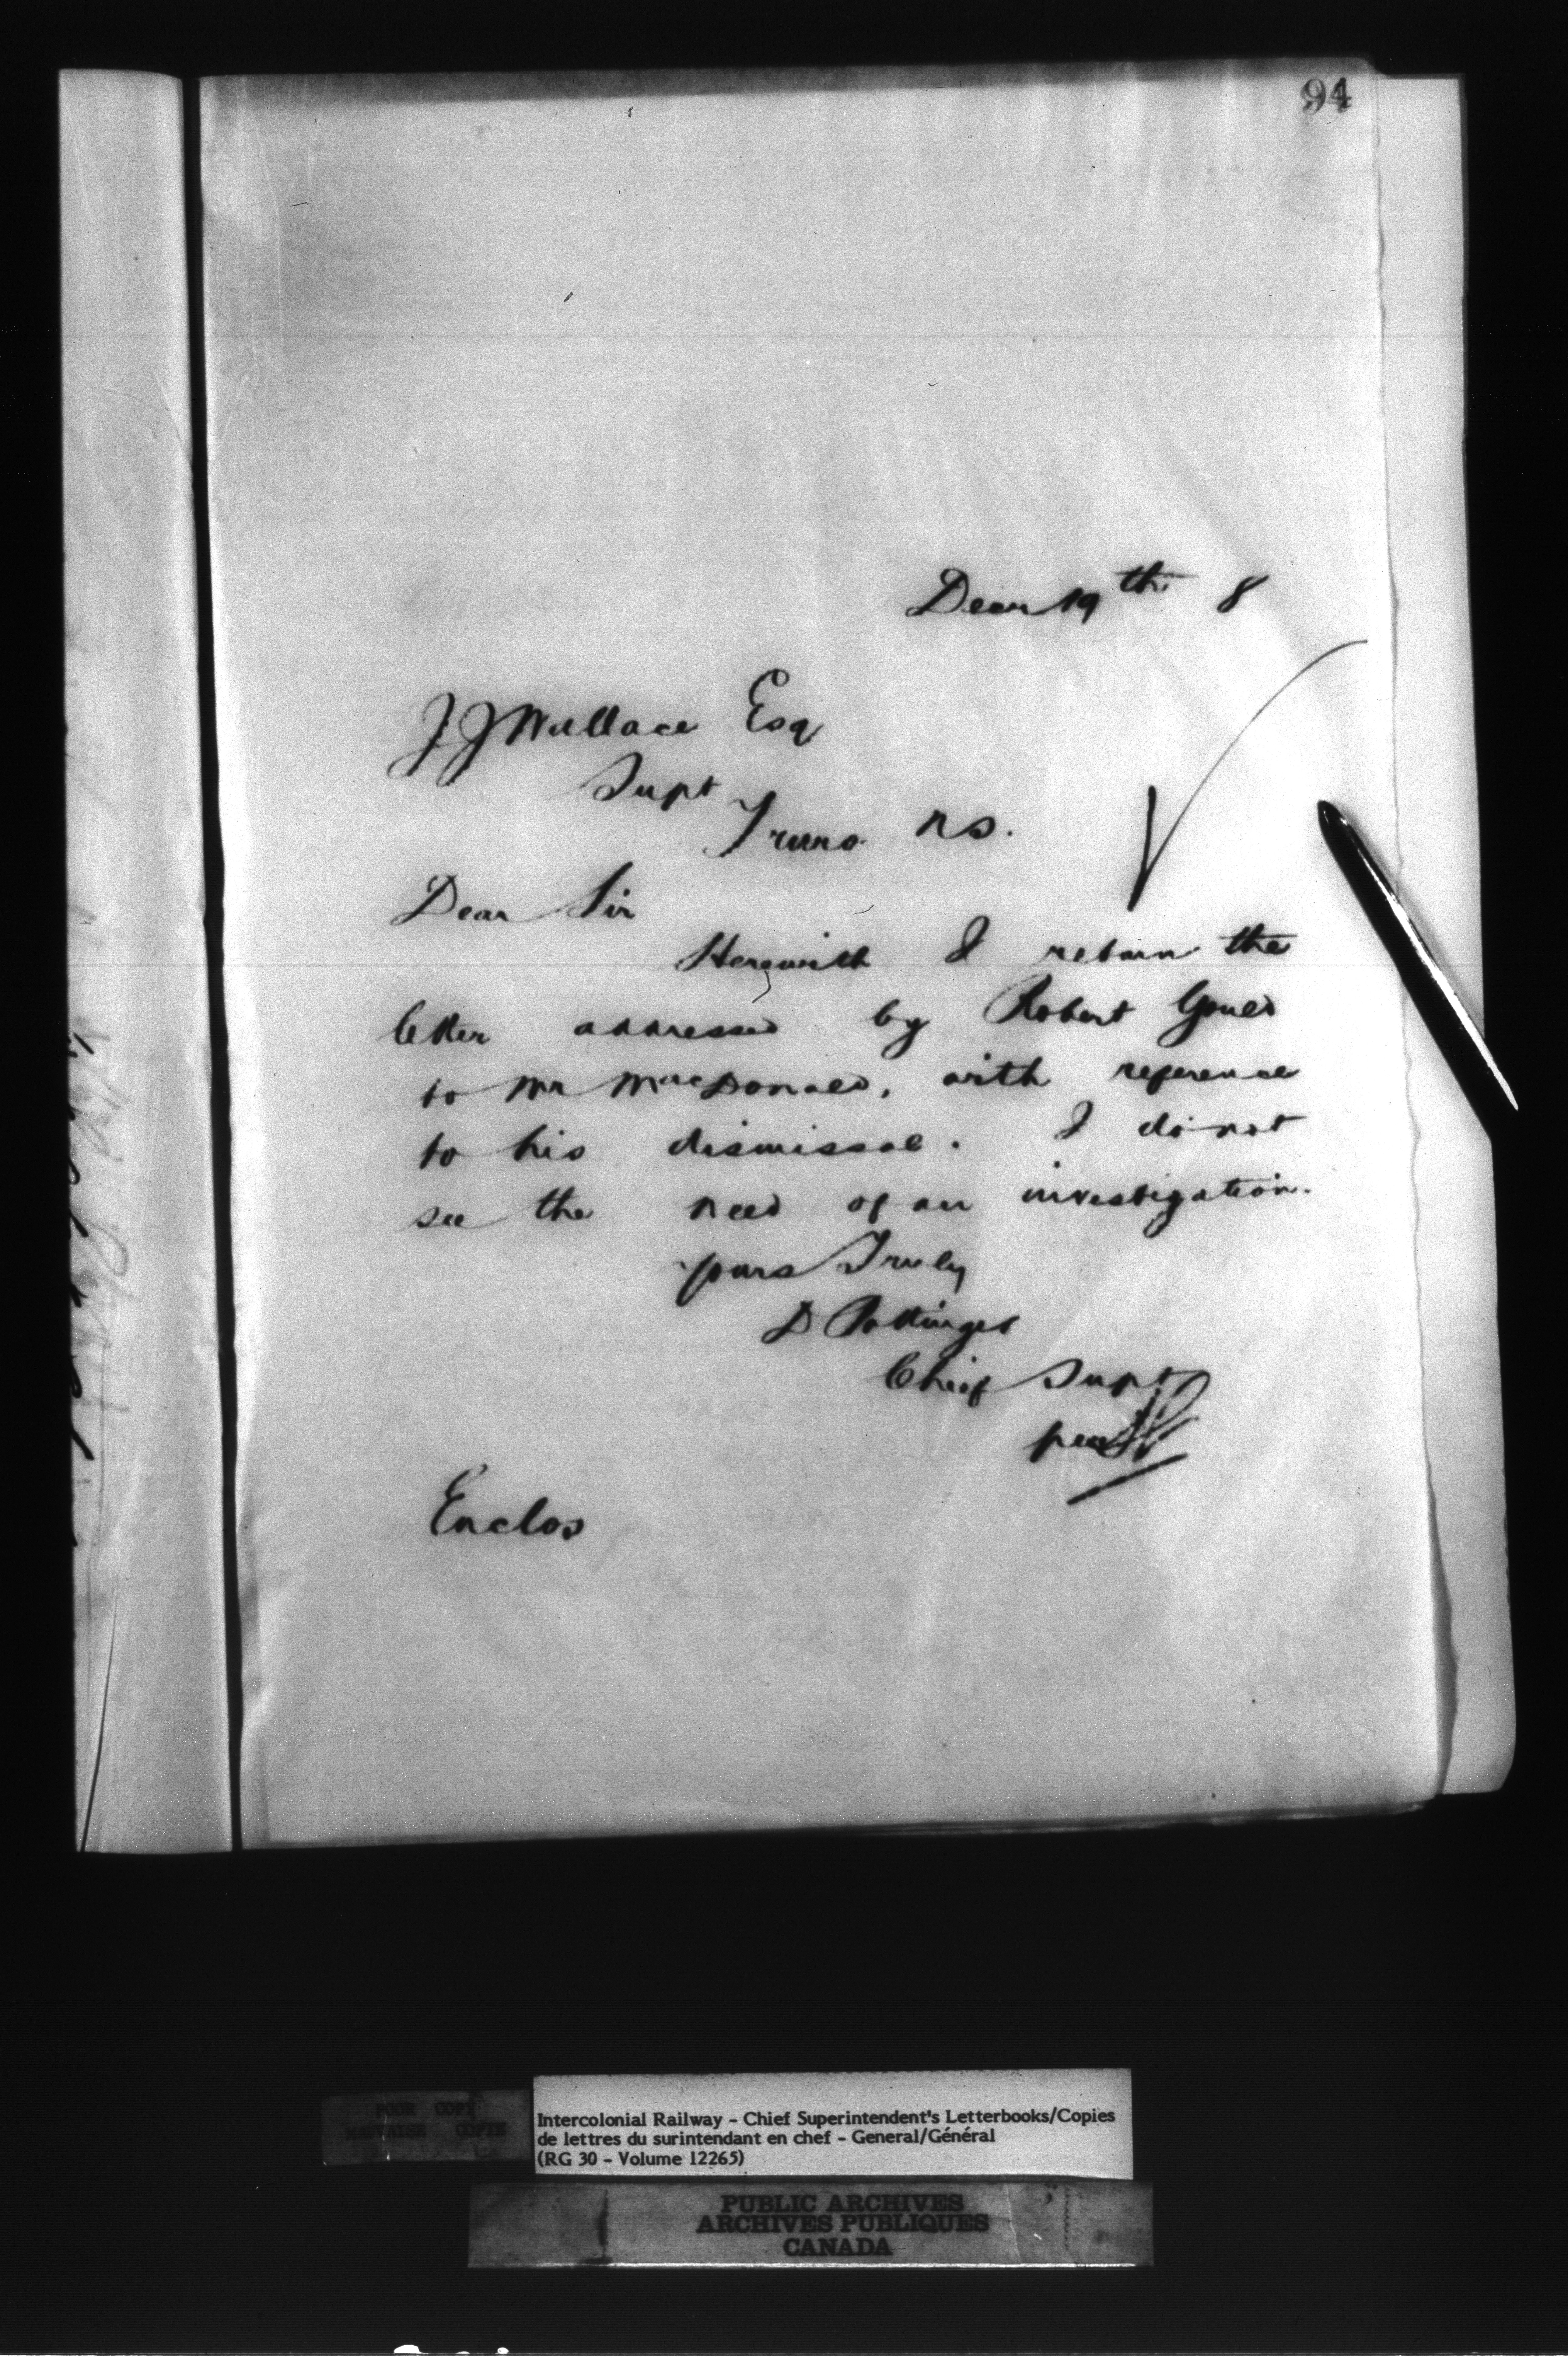 94
Decr 19th 8
J J Wallace Esq
Supt
Truro NS.
Dear Sir
Herewith I return the
letter addressed by Robert Gould
to Mr MacDonald, with reference
to his dismissal. I do not
see the need of an investigation.
yours Truly
D Pottinger
Chief Supt
per
Enclos
POOR COPY
MAUVAISE COPIE
Intercolonial Railway - Chief Superintendent's Letterbooks/Copies
de lettres du surintendant en chef - General/Général
(RG 30 - Volume 12265)
PUBLIC ARCHIVES
ARCHIVES PUBLIQUES
CANADA